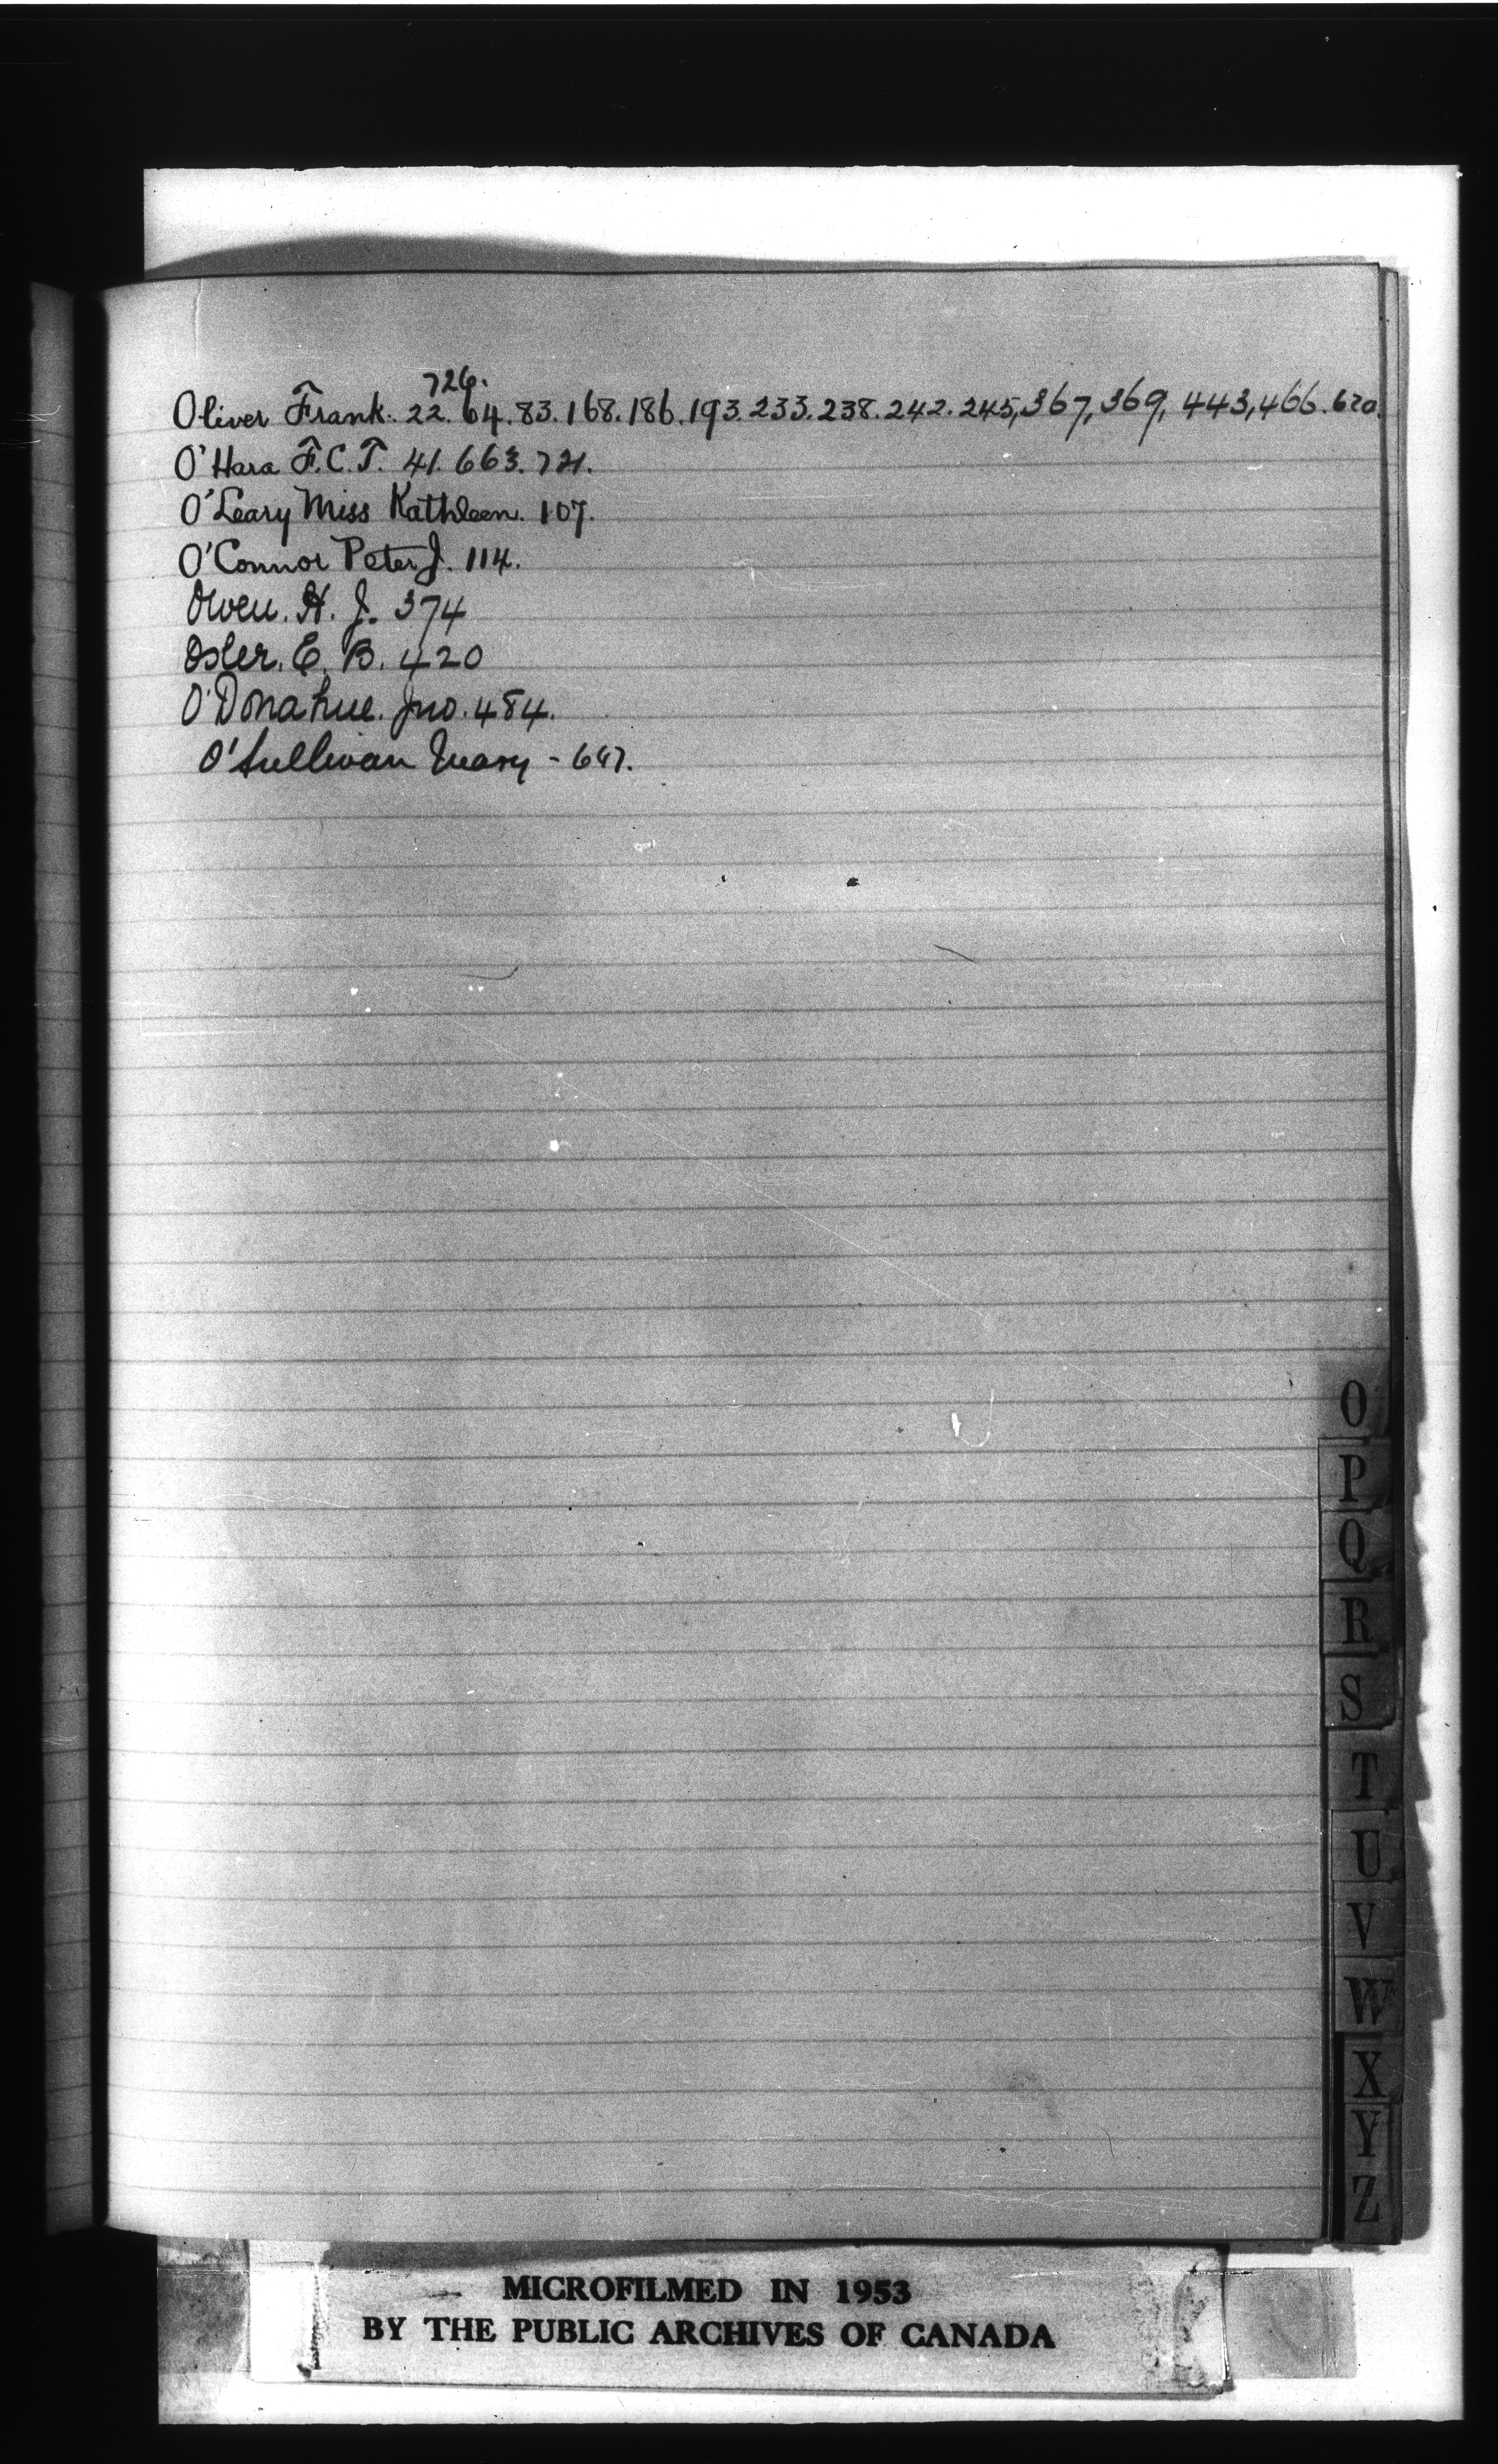 726.
Oliver Frank. 22. 64. 83. 168. 186. 193. 233. 238. 242. 245, 367, 369, 443, 466. 620.
O'Hara F.C.T. 41. 663. 721.
O'Leary Miss Kathleen. 107.
O'Connor Peter J. 114.
Owen. H. J. 374
Osler. E. B. 420
O'Donahue. Jno. 484.
O'Sullivan Mary -
O
P
Q
R
S
T
U
V
W
X
Y
Z
MICROFILMED IN 1953
BY THE PUBLIC ARCHIVES OF CANADA